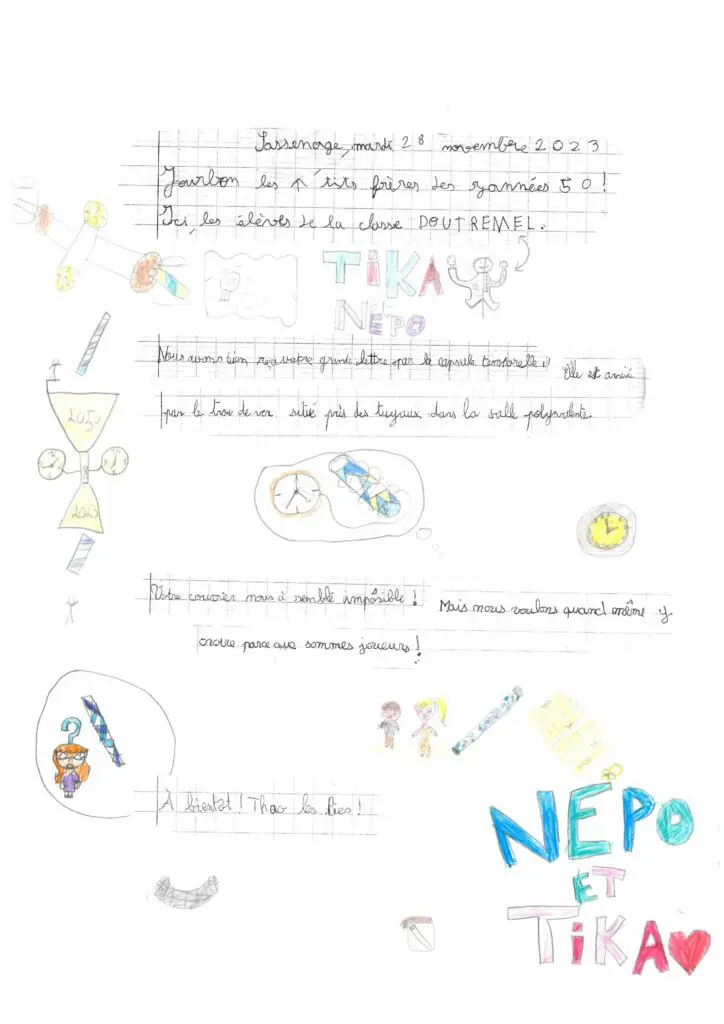 Sassenage, mardi 28 novembre 2023
Jourbon les p'tits frères des zannées 50 !
Ici, les élèves de la classe DOUTREMEL.
TiKA
NÉPO
Nous avons bien reçu votre grande lettre par la capsule temporelle !! Elle est arrivé
par le trou de ver, situé près des tuyaux dans la salle polyvalente.
2050
2023
Votre courrier nous à semblé impôssible ! Mais nous voulons quand même y
croire parce que sommes joueurs !
?
À bientôt ! Thao les bies !
NÉPO
ET
TiKA